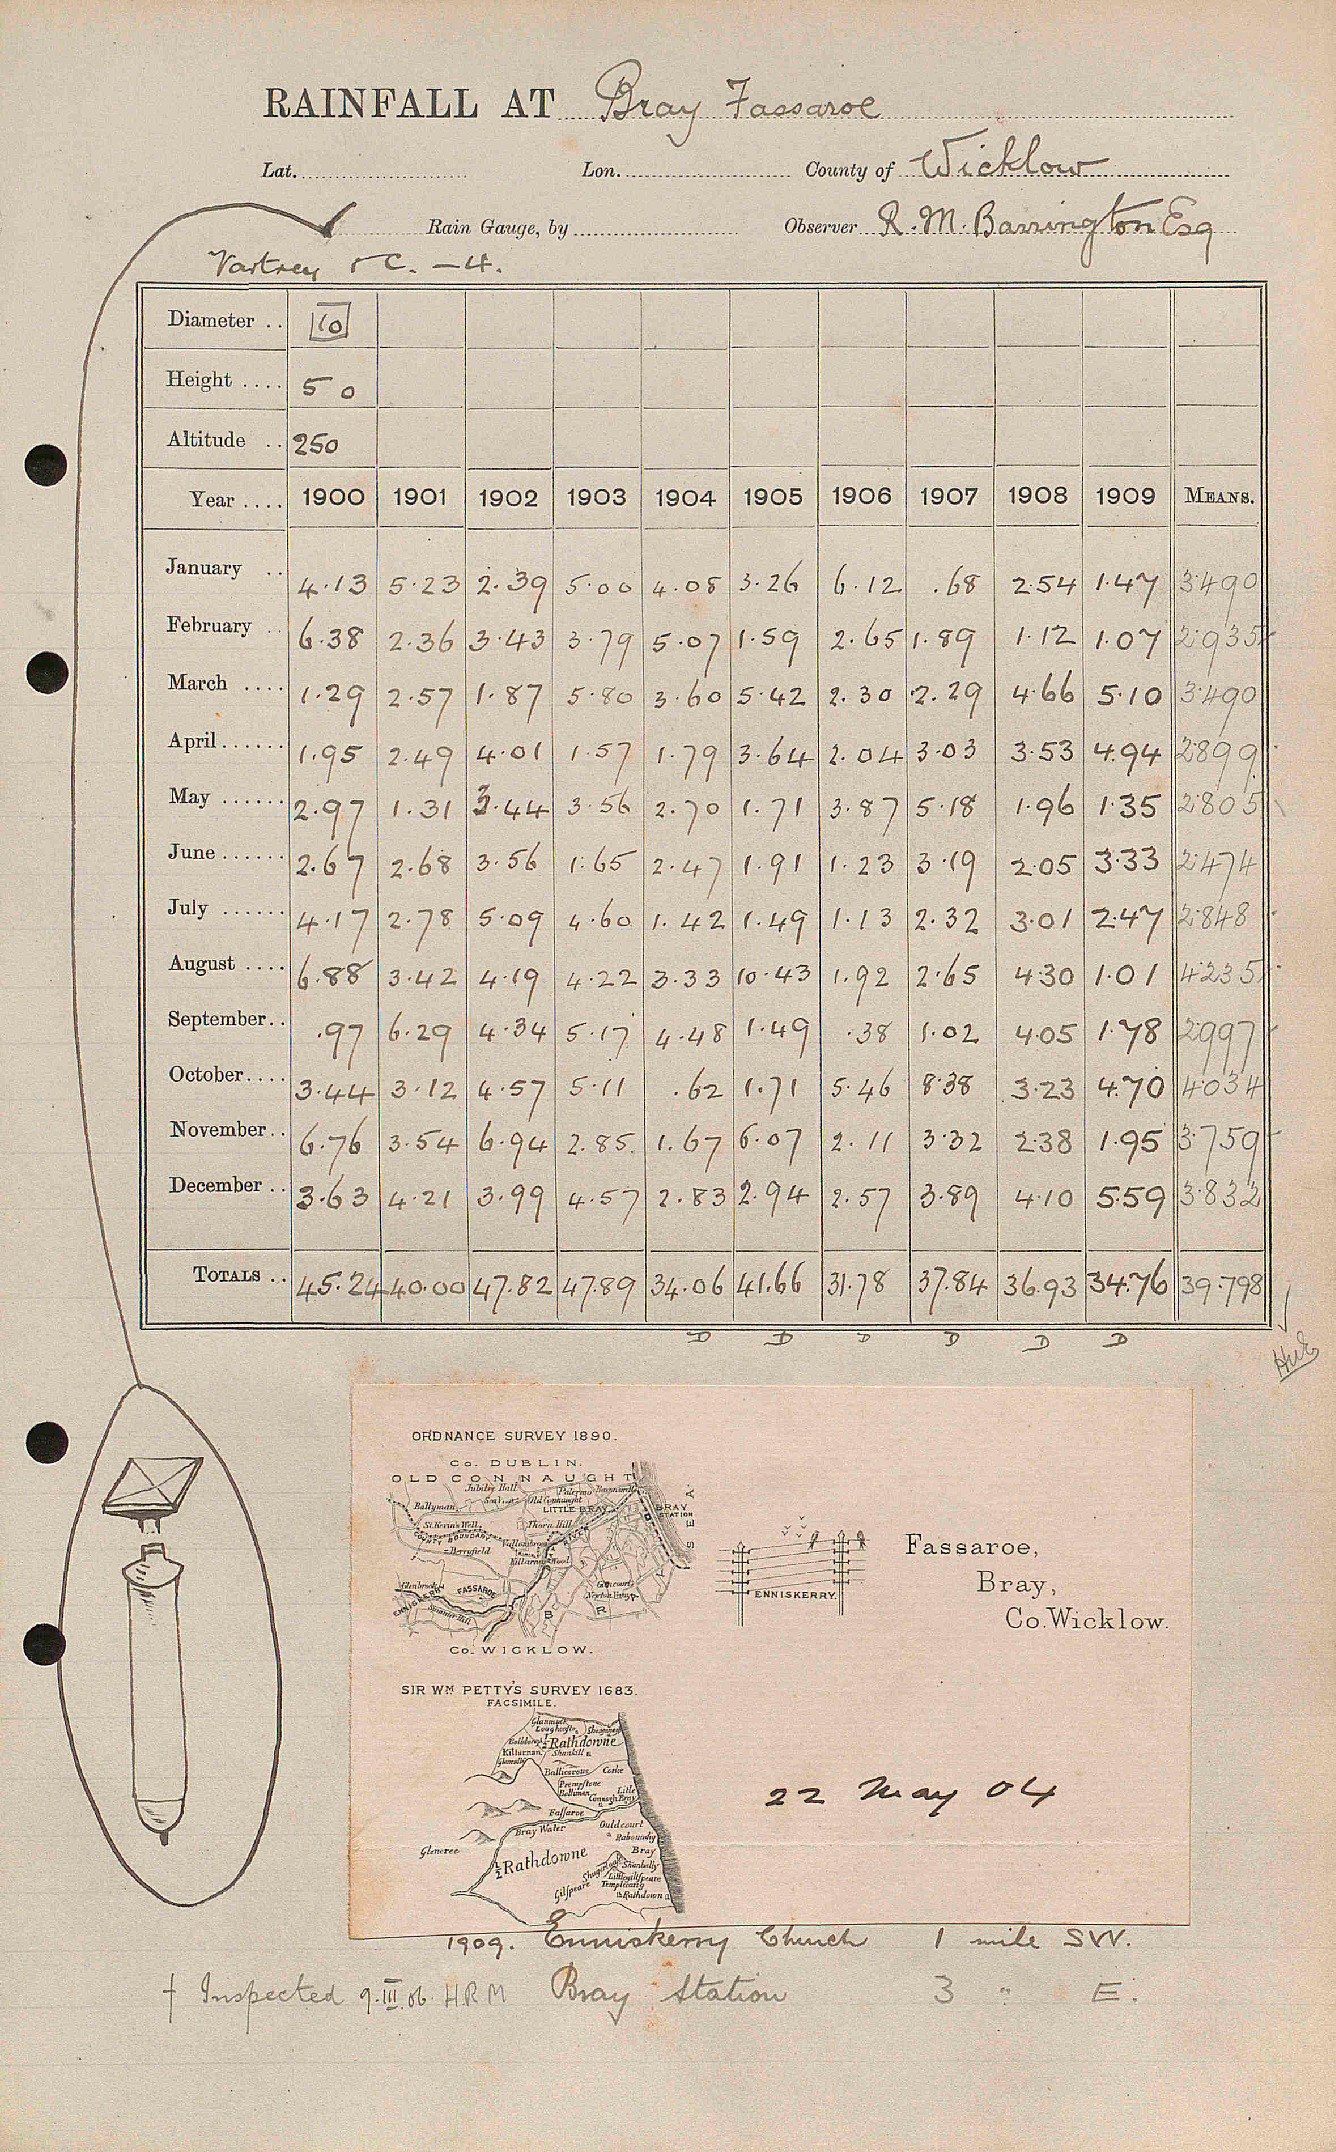 RAINFALL AT Bray Fassaroe
Lat. Lon. County of Wicklow
Rain Gauge, by Observer R. M. Barrington Esq
Vartrey
Diameter .. 10
Height .... 5 0
Altitude .. 250
Year .... 1900 1901 1902 1903 1904 1905 1906 1907 1908 1909 MEANS.
January .. 4.13 5.23 2.39 5.00 4.08 3.26 6.12 .68 2.54 1.47 3.490
February .. 6.38 2.36 3.43 3.79 5.07 1.59 2.65 1.89 1.12 1.07 2.935
March .... 1.29 2.57 1.87 5.80 3.60 5.42 2.30 2.29 4.66 5.10 3.490
April ...... 1.95 2.49 4.01 1.57 1.79 3.64 2.04 3.03 3.53 4.94 2.899
May ...... 2.97 1.31 3.44 3.56 2.70 1.71 3.87 5.18 1.96 1.35 2.805
June ...... 2.67 2.68 3.56 1.65 2.47 1.91 1.23 3.19 2.05 3.33 2.474
July ...... 4.17 2.78 5.09 4.60 1.42 1.49 1.13 2.32 3.01 2.47 2.848
August .... 6.88 3.42 4.19 4.22 3.33 10.43 1.92 2.65 4.30 1.01 4.235
September.. .97 6.29 4.34 5.17 4.48 1.49 .38 1.02 4.05 1.78 2.997
October.... 3.44 3.12 4.57 5.11 .62 1.71 5.46 8.38 3.23 4.70 4.034
November.. 6.76 3.54 6.94 2.85 1.67 6.07 2.11 3.32 2.38 1.95 3.759
December .. 3.63 4.21 3.99 4.57 2.83 2.94 2.57 3.89 4.10 5.59 3.832
TOTALS .. 45.24 40.00 47.82 47.89 34.06 41.66 31.78 37.84 36.93 34.76 39.798
D D D D D D
ORDNANCE SURVEY 1890.
Co. DUBLIN.
OLD CONNAUGHT
Jubilee Hall
Palermo
Old Connaught
Ballyman
LITTLE BRAY
BRAY STATION
SEA
St. Kevin's Well
Thorn Hill
COUNTY BOUNDARY
Berryfield
RIVER
FASSAROE
ENNISKERRY
BRAY
Co. WICKLOW.
ENNISKERRY.
Fassaroe,
Bray,
Co. Wicklow.
SIR WM PETTY'S SURVEY 1683.
FACSIMILE.
½ Rathdowne
Killarnan
Shankill
Ballicorous
Corke
Fassaroe
Bray Water
Ouldcourt
Glencree
Bray
½ Rathdowne
Gilspeare
Rathdown
22 May 04
1909. Enniskerry Church 1 mile SW.
† Inspected 9.III.06 HRM Bray Station 3 " E.